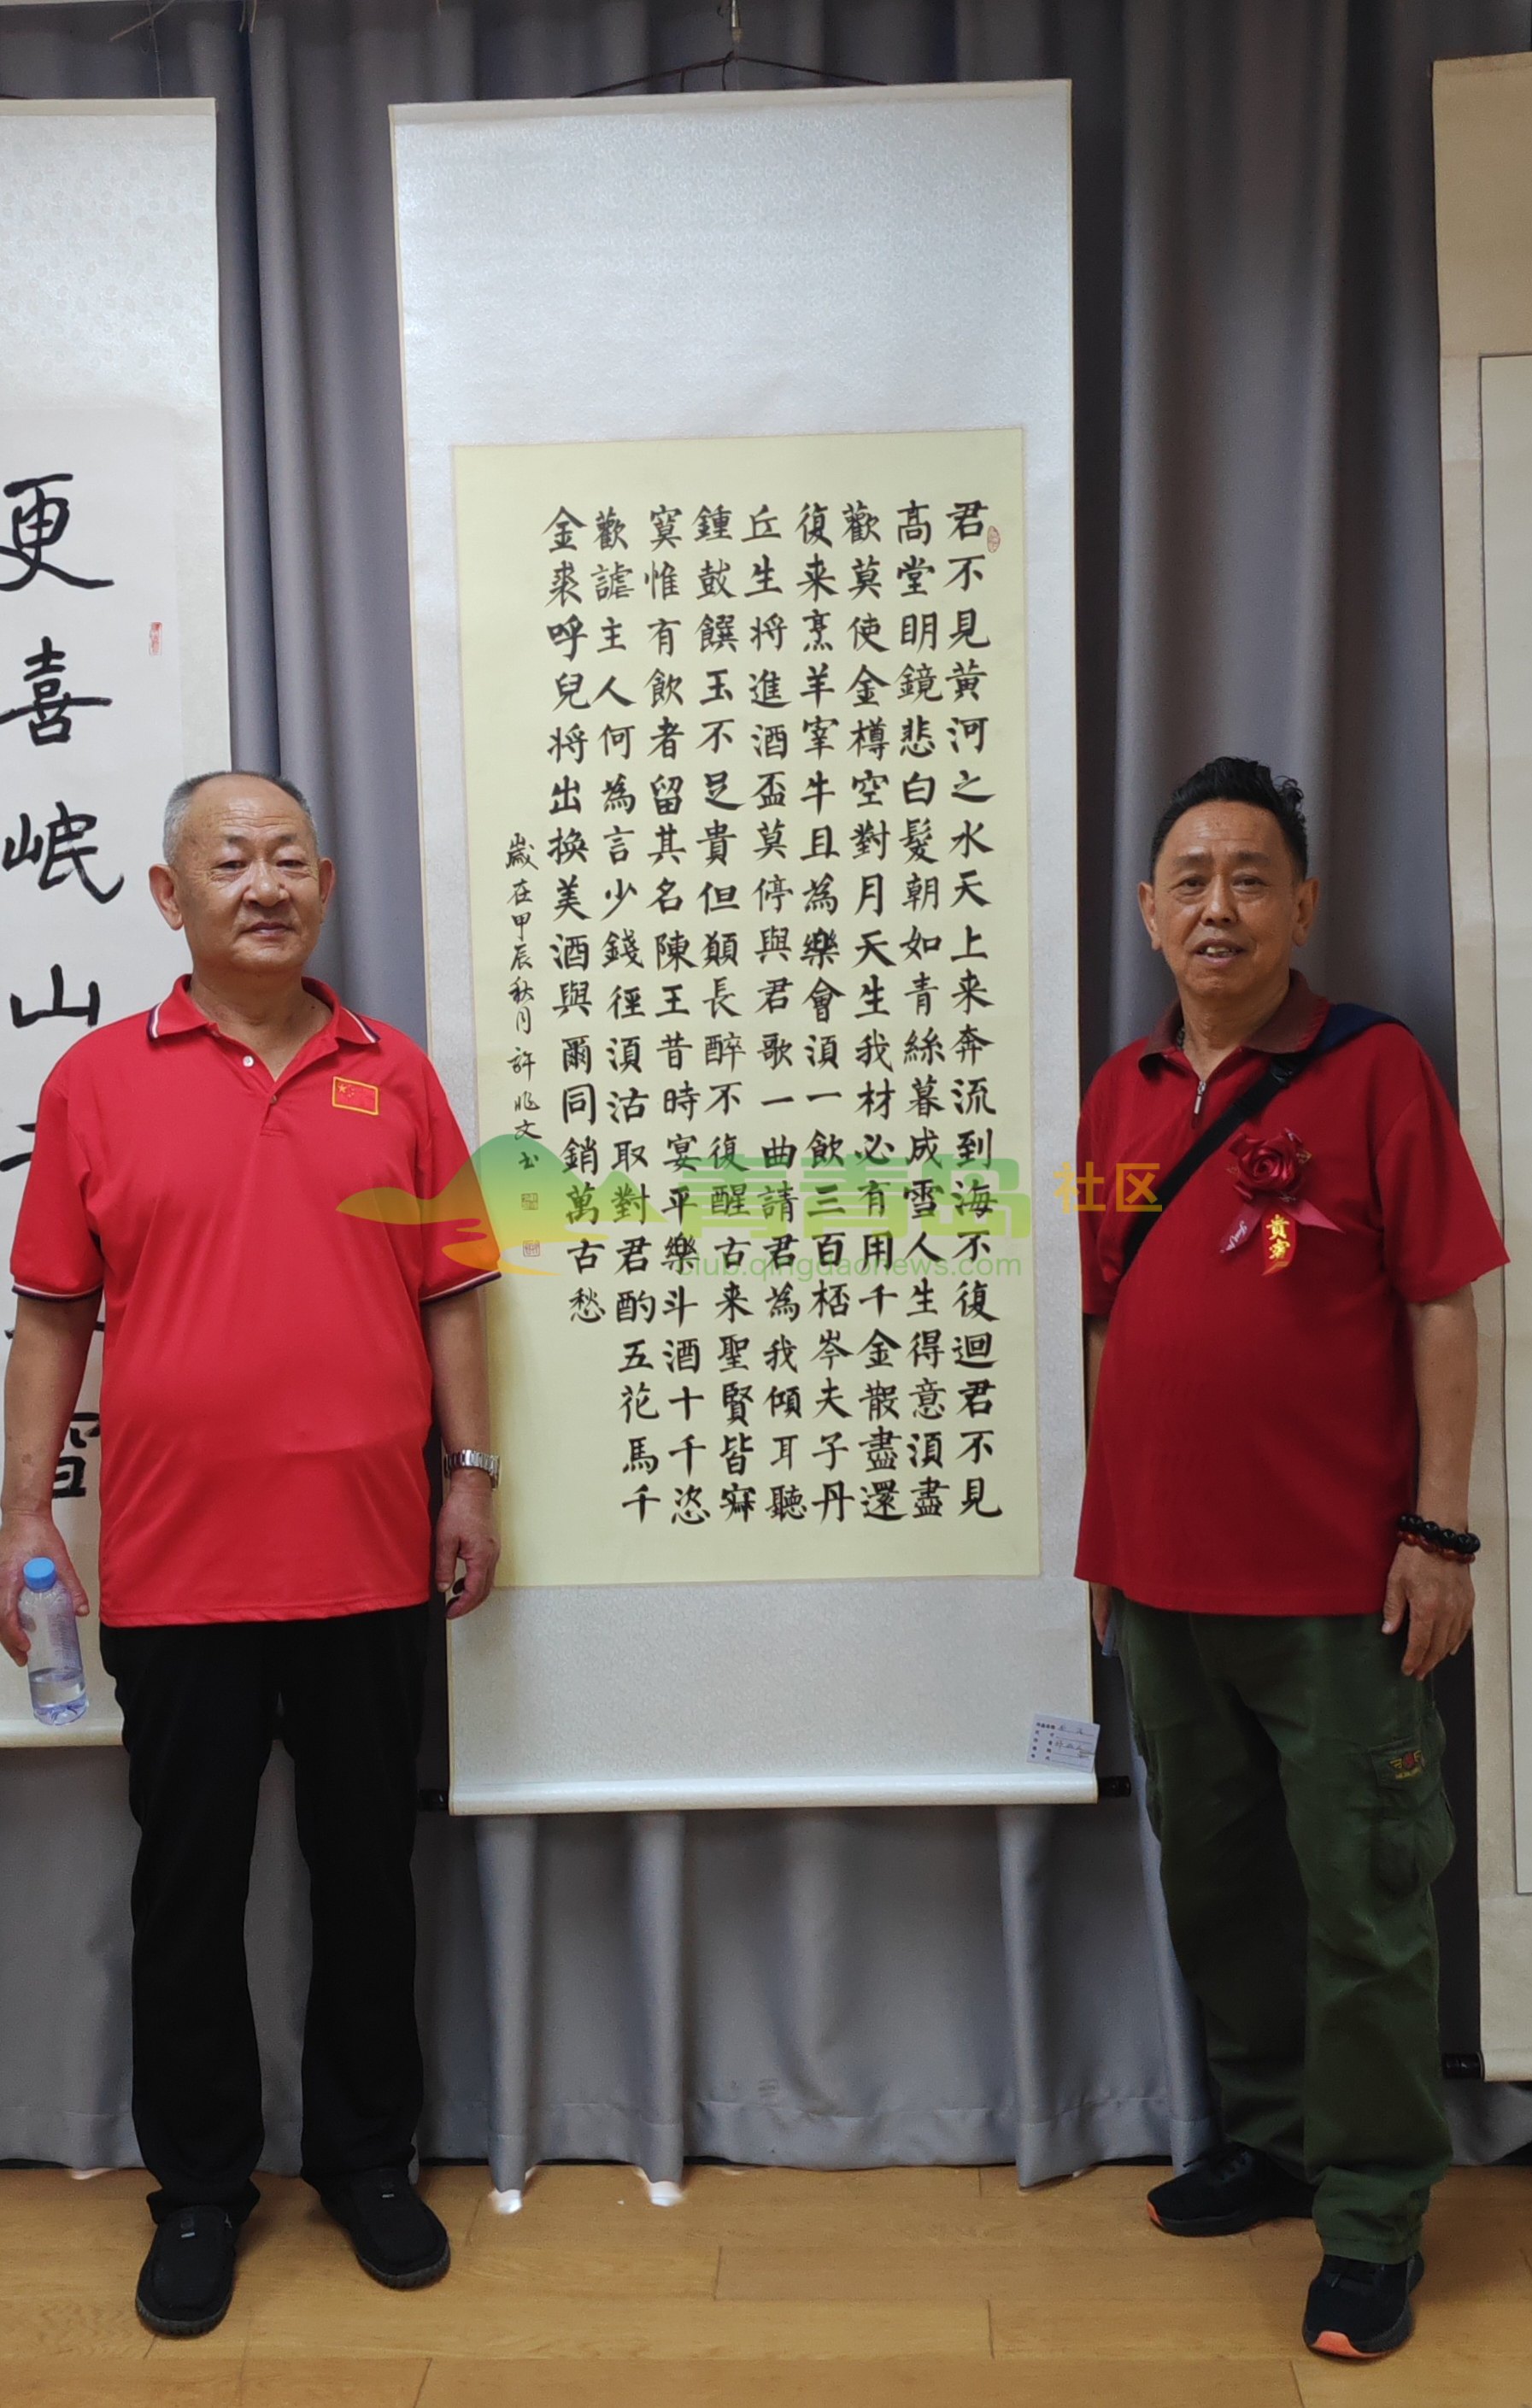 君不見黃河之水天上来奔流到海不復迴君不見
高堂明鏡悲白髮朝如青絲暮成雪人生得意須盡
歡莫使金樽空對月天生我材必有用千金散盡還
復来烹羊宰牛且為樂會須一飲三百桮岑夫子丹
丘生将進酒盃莫停與君歌一曲請君為我傾耳聽
鍾鼓饌玉不足貴但願長醉不復醒古来聖賢皆寂
寞惟有飲者留其名陳王昔時宴平樂斗酒十千恣
歡謔主人何為言少錢徑須沽取對君酌五花馬千
金裘呼兒将出换美酒與爾同銷萬古愁
歲在甲辰秋月許兆文书
更喜岷山
貴賓
青青岛社区
club.qingdaonews.com